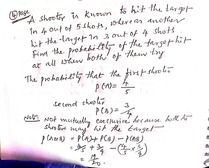 A shooter is known to hit the target
in 4 out of 5 shots, whereas another
hit the target in 3 out of 4 shots
Find the probability of the target hit
at all when both of them try
The probability that the first shooter
p(A) = 4/5
second shooter
p(B) = 3/4
Note: Not mutually exclusive because both
shooters may hit the target
p(A∪B) = p(A) + p(B) - p(A∩B)
= 4/5 + 3/4 - (4/5 × 3/4)